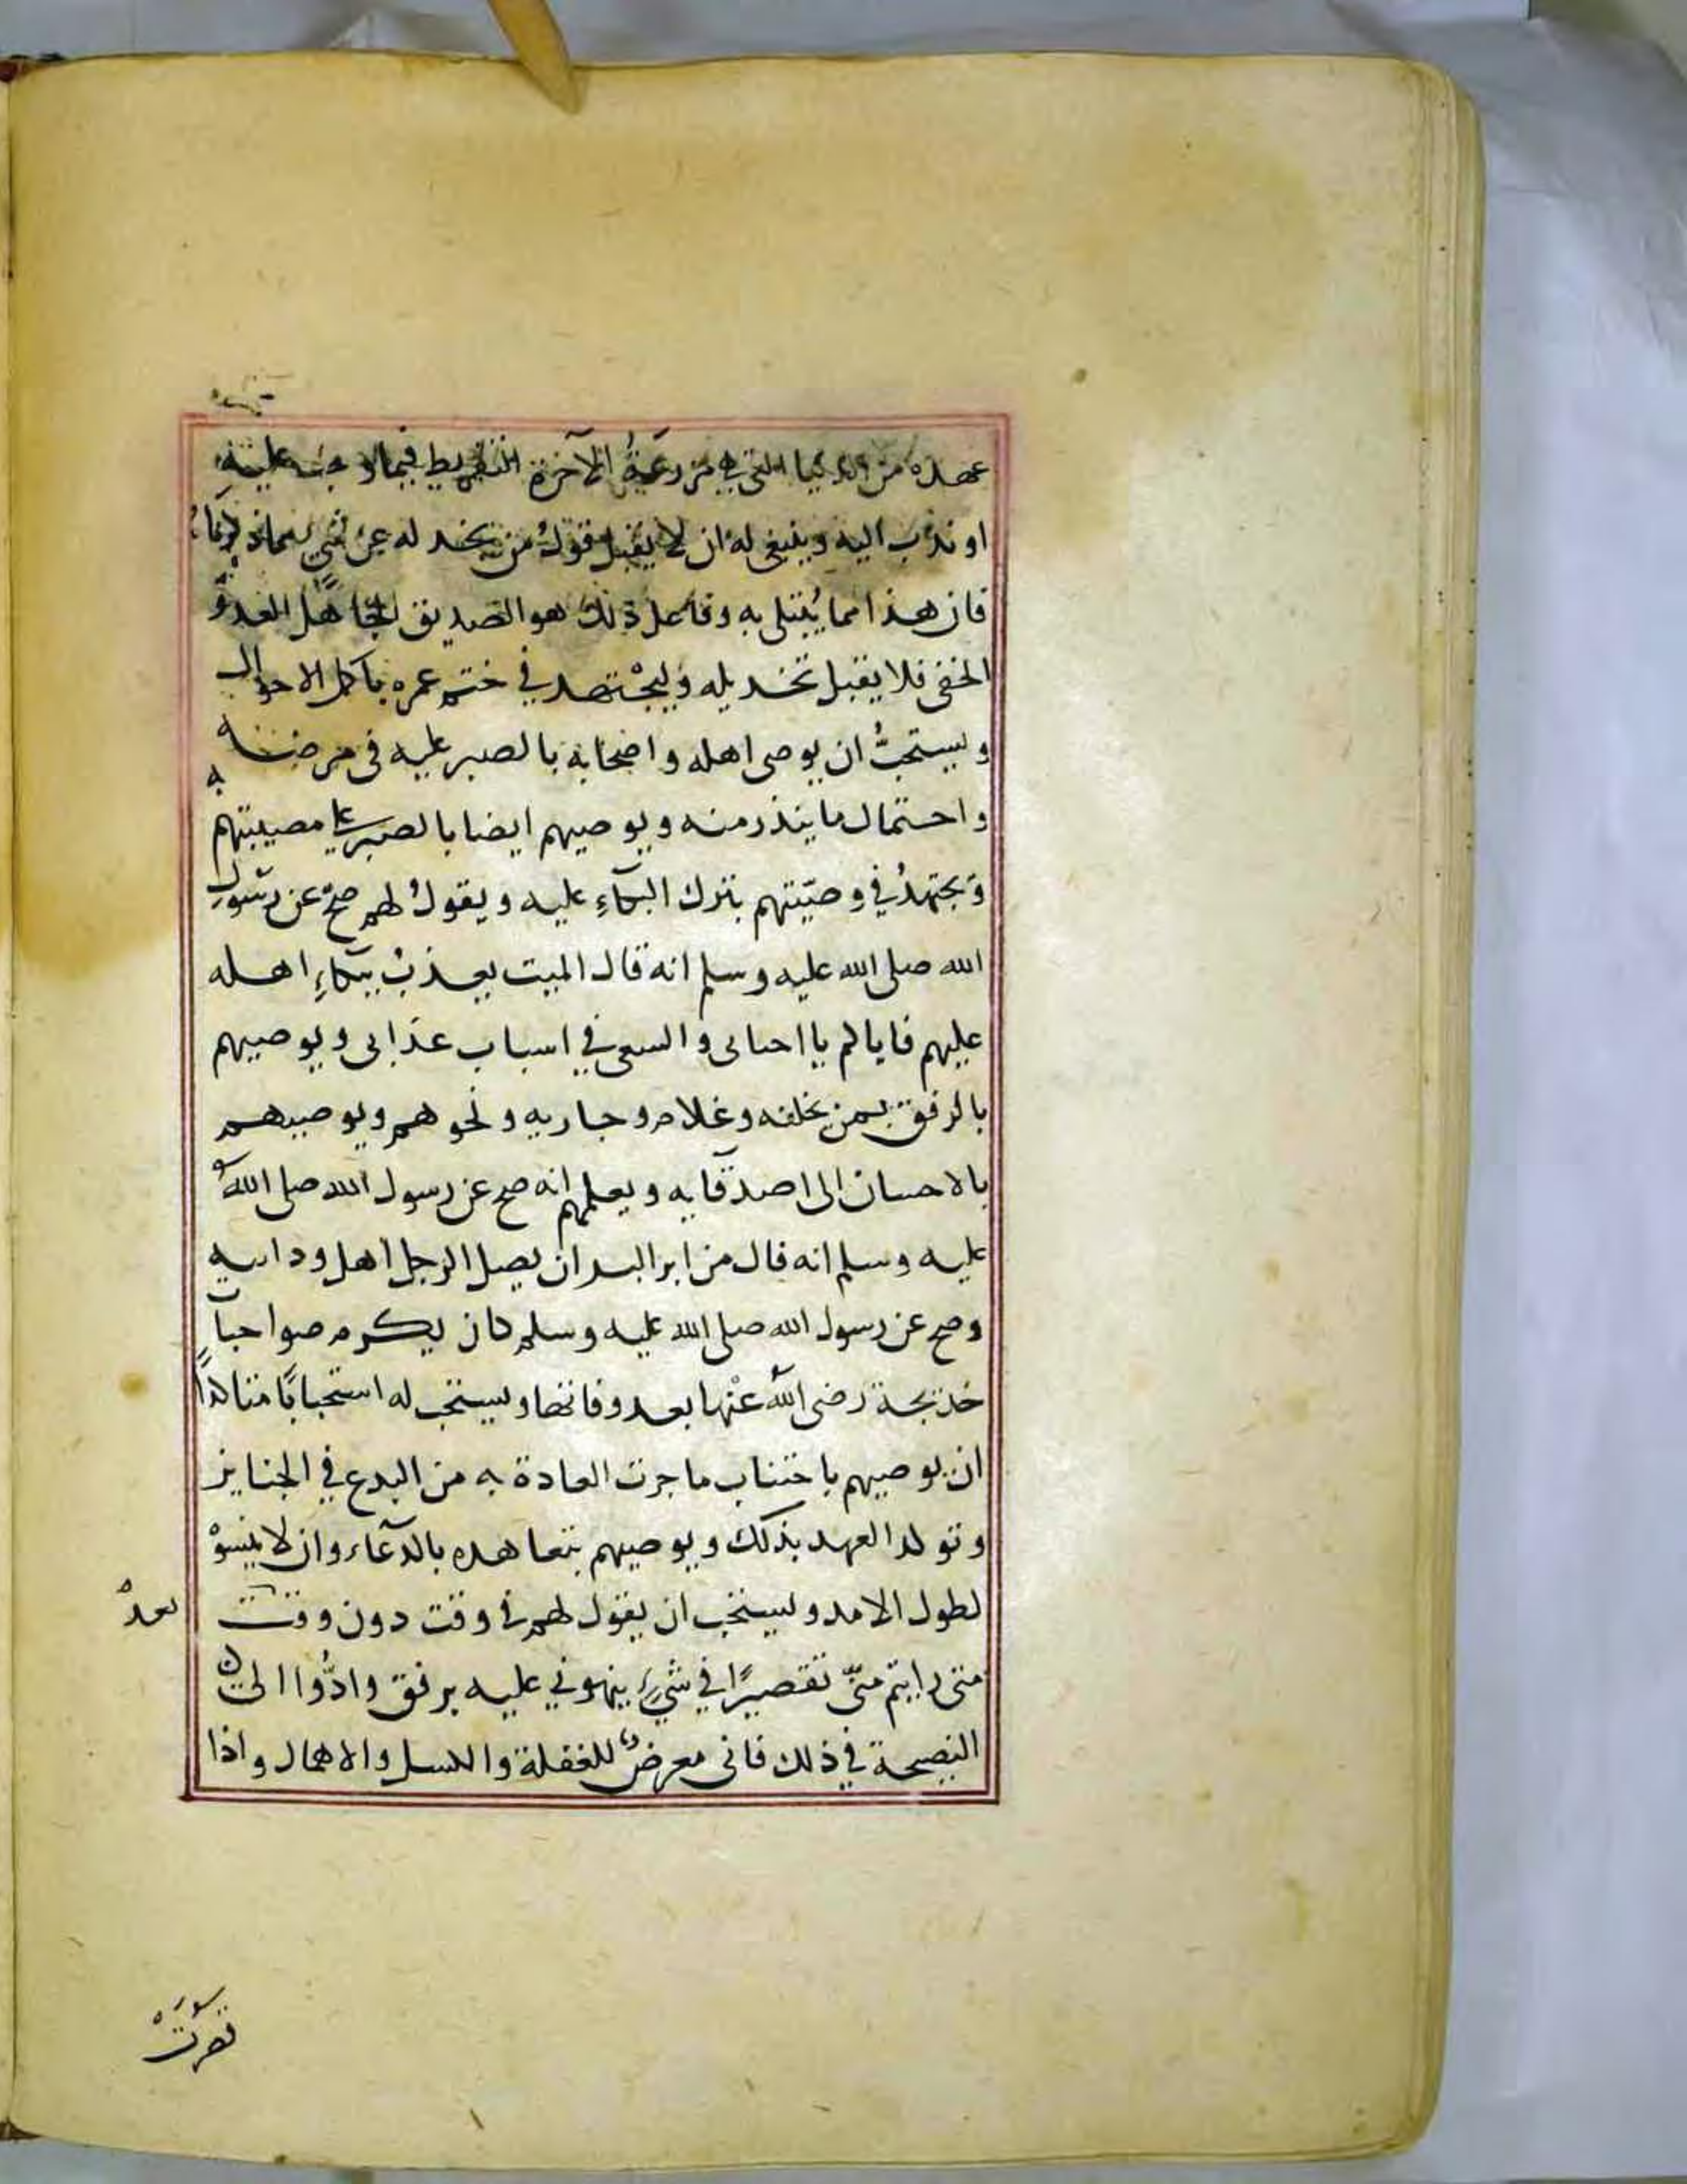 عهده من الدنيا التي هي مزرعة الآخرة التفريط فيما وجب عليه
او ندب اليه وينبغي له ان لا يقبل قول من يخذله عن شيء مما ذكرناه
فان هذا مما يُبتلى به وفاعل ذلك هو الصديق الجاهل العدو
الخفي فلا يقبل تخذيله وليجْتهد في ختم عمره باكمل الاحوال
ويستحبُّ ان يوصي اهله واصحابه بالصبر عليه في مرضه
واحتمال ما يندر منه ويوصيهم ايضا بالصبر على مصيبتهم به
ويجتهدُ في وصيّتهم بترك البكآءِ عليه ويقولُ لهم صحّ عن رسول
الله صلى الله عليه وسلم انه قال الميت يعذبُ ببكآءِ اهله
عليهم فاياكم يا احبائى والسعى في اسباب عذابى ويوصيهم
بالرفق بمن يخلفه وغلام وجاريه ونحوهم ويوصيهم
بالاحسان الى اصدقآيه ويعلمهم انه صح عن رسول الله صلى اللهُ
عليه وسلم انه قال من ابر البر ان يصل الرجل اهل ود ابيه
وصح عن رسول الله صلى الله عليه وسلم كان يكرم صواحبات
خديجة رضى اللهُ عنْها بعد وفاتها ويستحب له استحبابًا متاكدًا
ان يوصيهم باجتناب ما جرت العادة به من البدع في الجنايز
وتوكد العهد بذلك ويوصيهم بتعاهده بالدعآء وان لا ينسوْه
لطول الامد ويستحب ان يقول لهم في وقت دون وقت
بعد
متى رايتم منّى تقصيرًا في شيءٍ ينهوني عليه برفق وادُّوا الىّ
النصيحة في ذلك فانى معرضٌ للغفلة والكسل والاهمال واذا